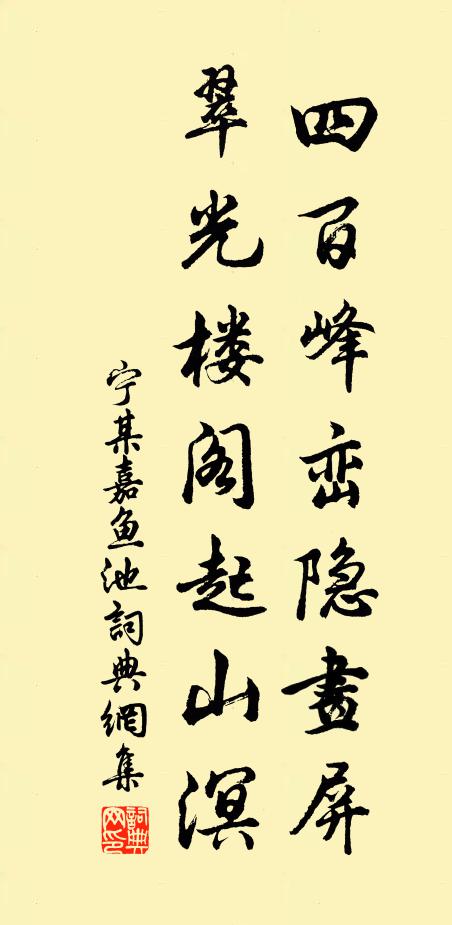 四百峰峦隐畫屏
翠光楼阁起山溟
宁某嘉鱼池詞典網集
詞典网印